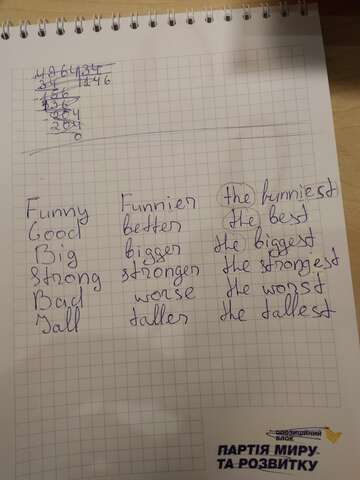 4764 34
34 1146
136
136
204
204
0
Funny Funnier the funniest
Good better the best
Big bigger the biggest
Strong stronger the strongest
Bad worse the worst
Tall taller the tallest
ОПОЗИЦІЙНИЙ
БЛОК
ПАРТІЯ МИРУ
ТА РОЗВИТКУ